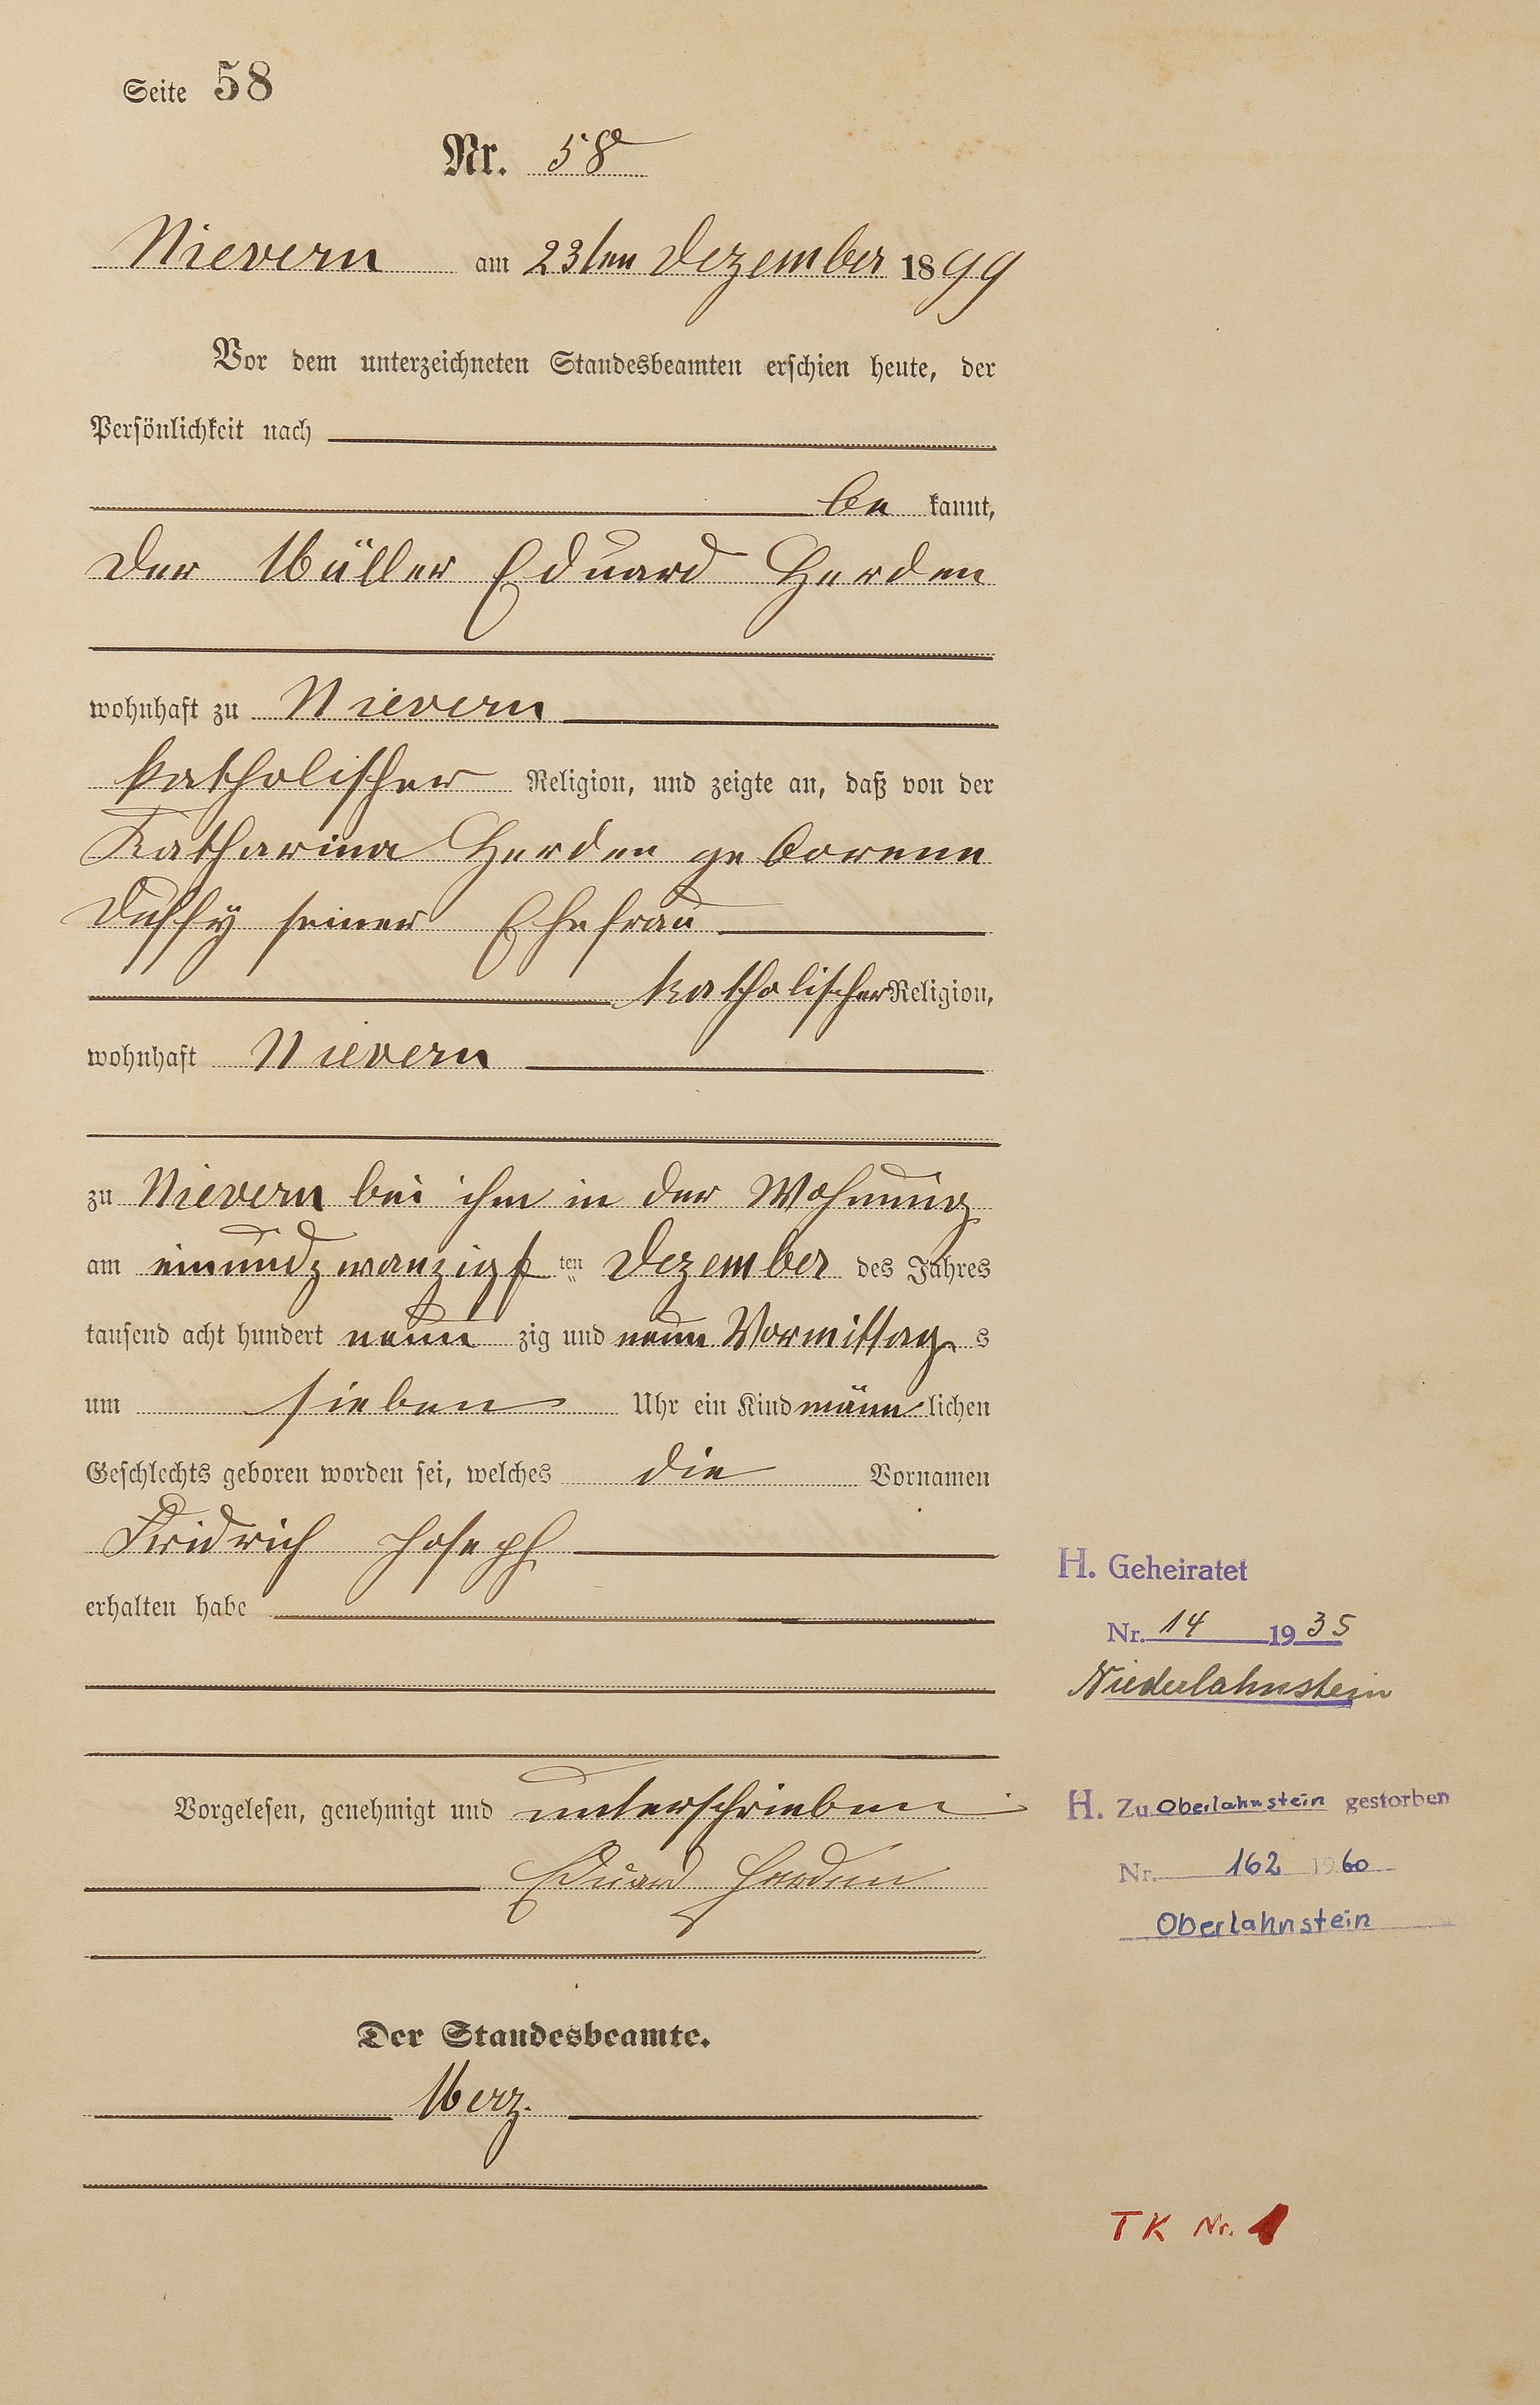 Seite 58
Nr. 58
Nievern am 23ten Dezember 1899
Vor dem unterzeichneten Standesbeamten erschien heute, der
Persönlichkeit nach
be kannt,
der Müller Eduard Herden
wohnhaft zu Nievern
katholischer Religion, und zeigte an, daß von der
Katharina Herden geborene
seiner Ehefrau
katholischer Religion,
wohnhaft Nievern
zu Nievern bei ihm in der Wohnung
am einundzwanzigsten Dezember des Jahres
tausend acht hundert neun zig und neun Vormittags
um sieben Uhr ein Kind männlichen
Geschlechts geboren worden sei, welches die Vornamen
Fridrich Joseph
erhalten habe
H. Geheiratet
Nr. 14 1935
Niederlahnstein
Vorgelesen, genehmigt und unterschrieben
Eduard Herden
H. Zu Oberlahnstein gestorben
Nr. 162 1960
Oberlahnstein
Der Standesbeamte.
Merz.
TK Nr. 1